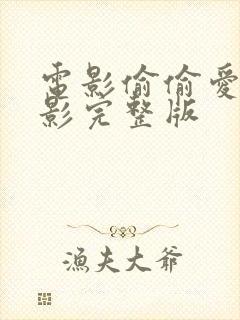 電影偷偷愛
影完整版
漁夫大爺